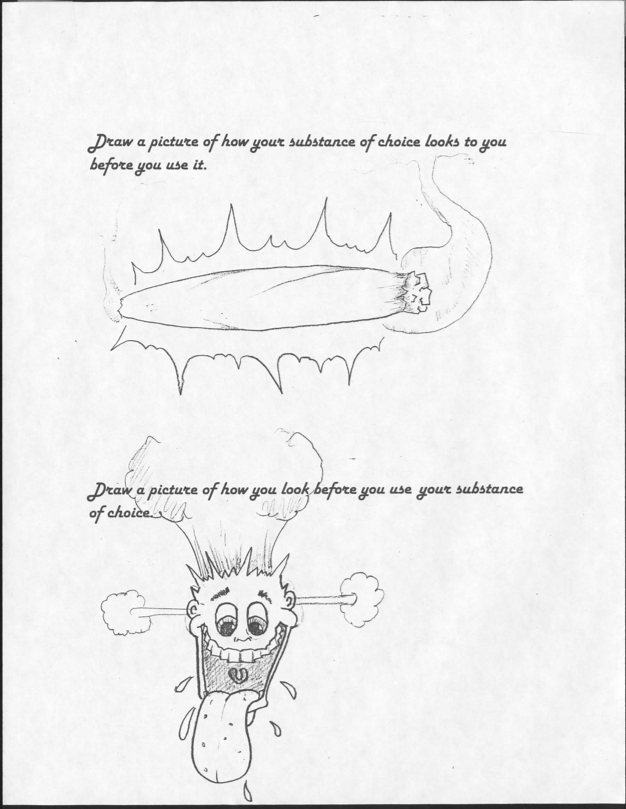 Draw a picture of how your substance of choice looks to you
before you use it.
Draw a picture of how you look before you use your substance
of choice.